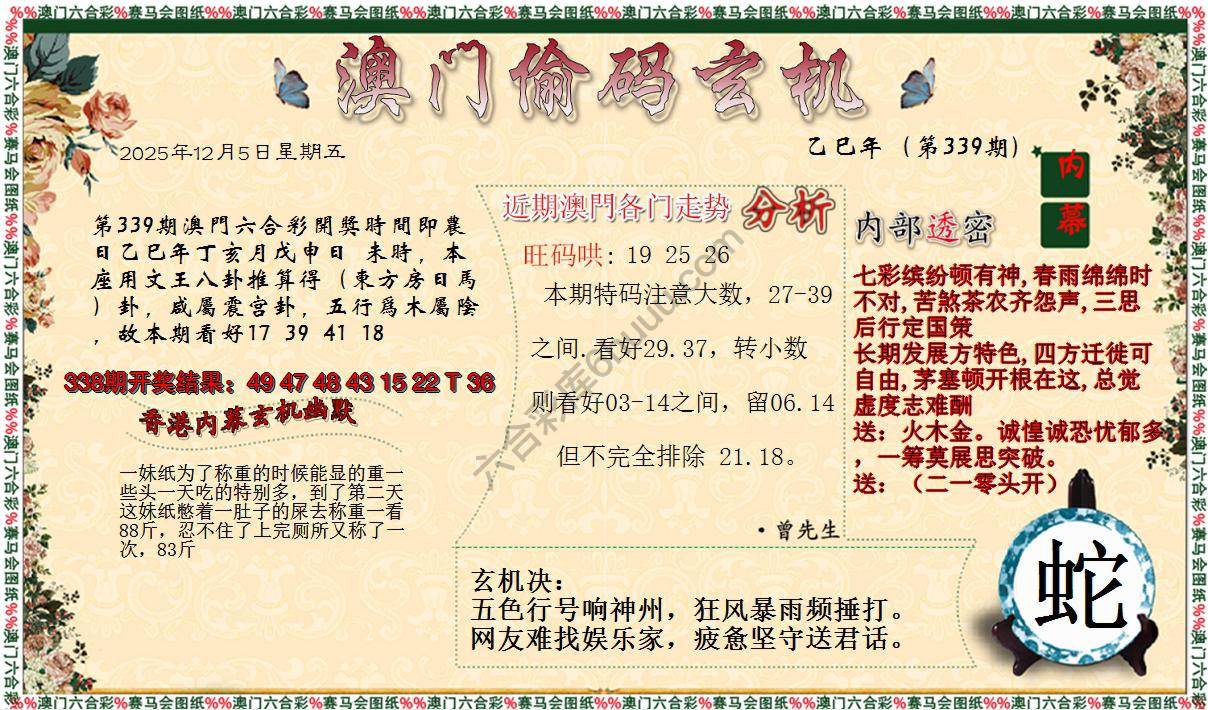 %%澳门六合彩%赛马会图纸%%澳门六合彩%赛马会图纸%%澳门六合彩%赛马会图纸%%澳门六合彩%赛马会图纸%%澳门六合彩%赛马会图纸%%澳门六合彩%赛马会图纸%%
澳门偷码玄机
2025年12月5日星期五
乙巳年（第339期）
内幕
第339期澳門六合彩開獎時間即農
日乙巳年丁亥月戊申日 未時，本
座用文王八卦推算得（東方房日馬
）卦，咸屬震宫卦，五行爲木屬陰
，故本期看好17 39 41 18
338期开奖结果：49 47 48 43 15 22 T 36
香港内幕玄机幽默
一妹纸为了称重的时候能显的重一
些头一天吃的特别多，到了第二天
这妹纸憋着一肚子的屎去称重一看
88斤，忍不住了上完厕所又称了一
次，83斤
近期澳門各门走势 分析
旺码哄: 19 25 26
本期特码注意大数，27-39
之间.看好29.37，转小数
则看好03-14之间，留06.14
但不完全排除 21.18。
·曾先生
内部透密
七彩缤纷顿有神,春雨绵绵时
不对,苦煞茶农齐怨声,三思
后行定国策
长期发展方特色,四方迁徙可
自由,茅塞顿开根在这,总觉
虚度志难酬
送：火木金。诚惶诚恐忧郁多
，一筹莫展思突破。
送：（二一零头开）
玄机决：
五色行号响神州，狂风暴雨频捶打。
网友难找娱乐家，疲惫坚守送君话。
蛇
%%澳门六合彩%赛马会图纸%%澳门六合彩%赛马会图纸%%澳门六合彩%赛马会图纸%%澳门六合彩%赛马会图纸%%澳门六合彩%赛马会图纸%%澳门六合彩%赛马会图纸%%